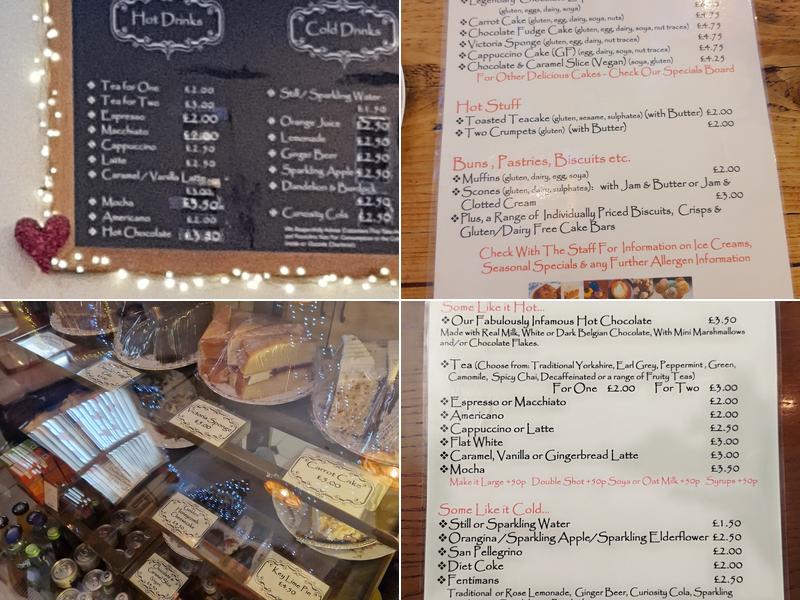 Hot Drinks
Tea for One £2.00
Tea for Two £3.00
Espresso £2.00
Macchiato £2.00
Cappuccino £2.50
Latte £2.50
Caramel/Vanilla Latte
£3.00
Mocha £3.50
Americano £2.00
Hot Chocolate £3.50
Cold Drinks
Still/Sparkling Water
£1.50
Orange Juice £2.50
Lemonade £2.50
Ginger Beer £2.50
Sparkling Apple £2.50
Dandelion & Burdock
£2.50
Curiosity Cola £2.50
(gluten, eggs, dairy, soya)
Carrot Cake (gluten, egg, dairy, soya, nuts) £4.75
Chocolate Fudge Cake (gluten, egg, dairy, soya, nut traces) £4.75
Victoria Sponge (gluten, egg, dairy, nut traces) £4.75
Cappuccino Cake (GF) (egg, dairy, soya, nut traces) £4.75
Chocolate & Caramel Slice (Vegan) (soya, gluten) £4.25
For Other Delicious Cakes - Check Our Specials Board
Hot Stuff
Toasted Teacake (gluten, sesame, sulphates) (with Butter) £2.00
Two Crumpets (gluten) (with Butter) £2.00
Buns, Pastries, Biscuits etc.
Muffins (gluten, dairy, egg, soya) £2.00
Scones (gluten, dairy, sulphates): with Jam & Butter or Jam &
Clotted Cream £3.00
Plus, a Range of Individually Priced Biscuits, Crisps &
Gluten/Dairy Free Cake Bars
Check With The Staff For Information on Ice Creams,
Seasonal Specials & any Further Allergen Information
Victoria Sponge
£3.00
Carrot Cake
£3.00
Key Lime Pie
£4.50
Some Like it Hot...
Our Fabulously Infamous Hot Chocolate £3.50
Made with Real Milk, White or Dark Belgian Chocolate, With Mini Marshmallows
and/or Chocolate Flakes.
Tea (Choose from: Traditional Yorkshire, Earl Grey, Peppermint, Green,
Camomile, Spicy Chai, Decaffeinated or a range of Fruity Teas)
For One £2.00 For Two £3.00
Espresso or Macchiato £2.00
Americano £2.00
Cappuccino or Latte £2.50
Flat White £3.00
Caramel, Vanilla or Gingerbread Latte £3.00
Mocha £3.50
Make it Large +50p Double Shot +50p Soya or Oat Milk +50p Syrups +50p
Some Like it Cold...
Still or Sparkling Water £1.50
Orangina/Sparkling Apple/Sparkling Elderflower £2.50
San Pellegrino £2.00
Diet Coke £2.00
Fentimans £2.50
Traditional or Rose Lemonade, Ginger Beer, Curiosity Cola, Sparkling